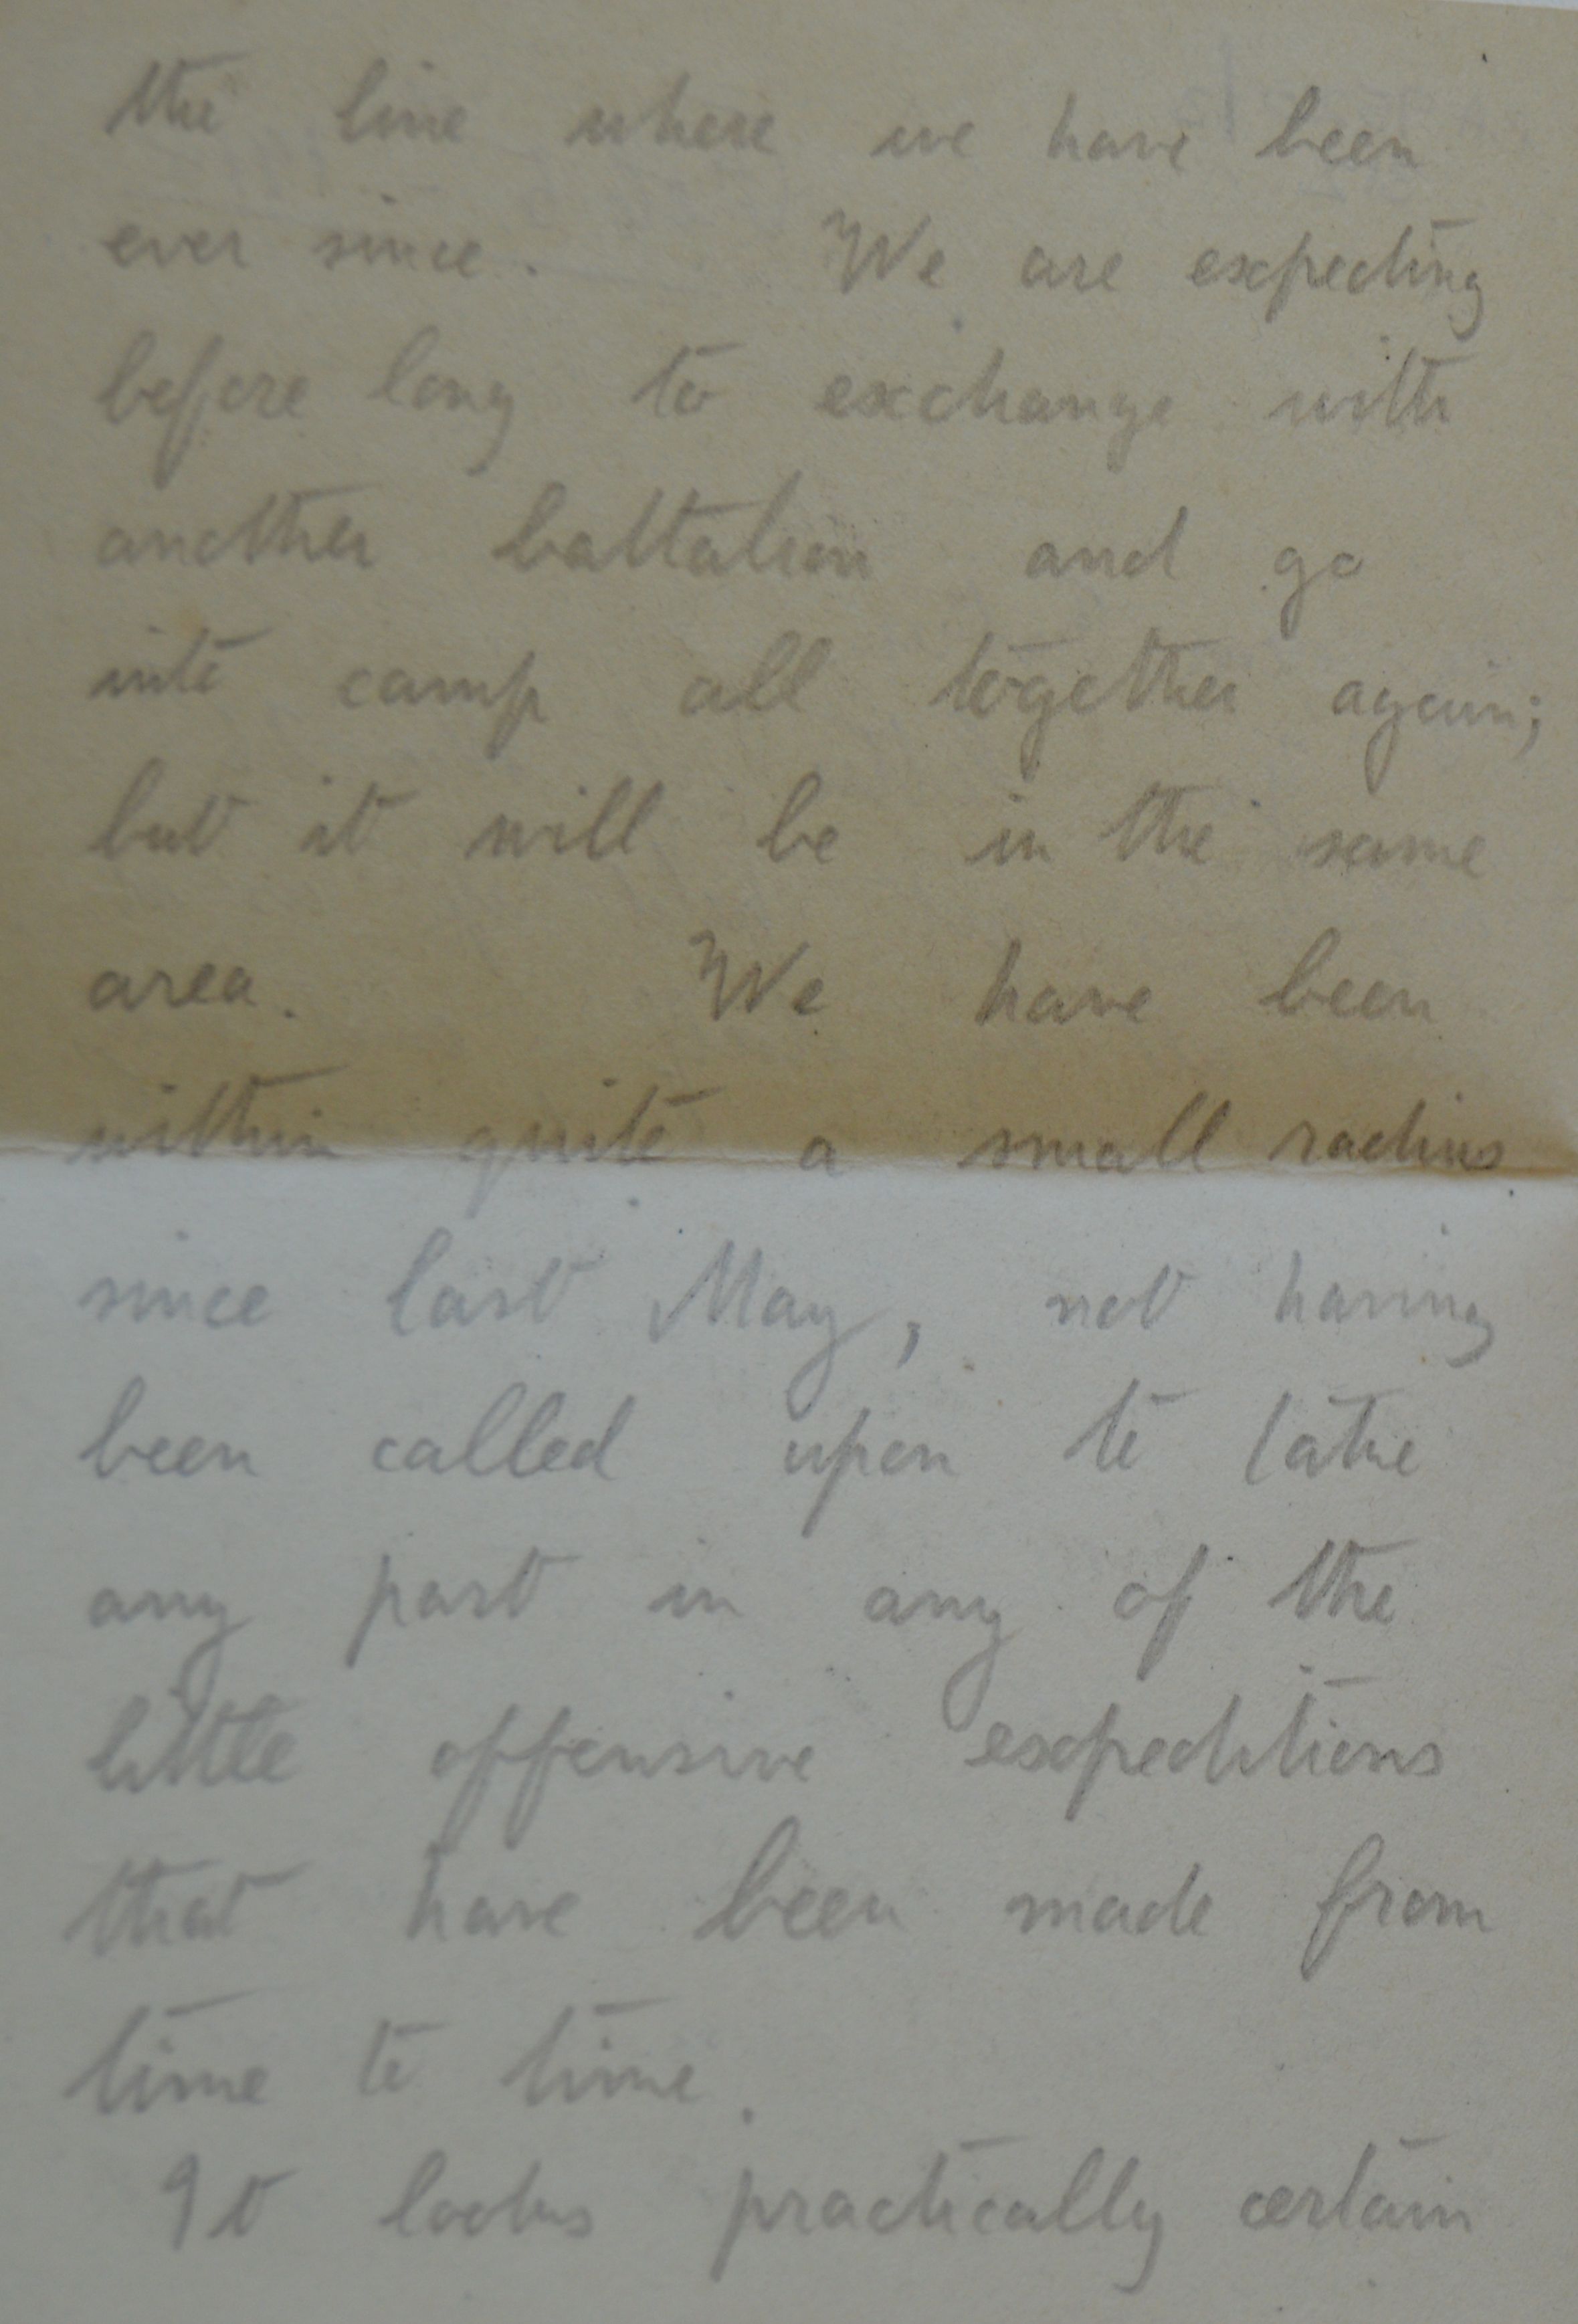 the line where we have been
ever since. We are expecting
before long to exchange with
another battalion and go
into camp all together again;
but it will be in the same
area. We have been
within quite a small radius
since last May, not having
been called upon to take
any part in any of the
little offensive expeditions
that have been made from
time to time.
It looks practically certain